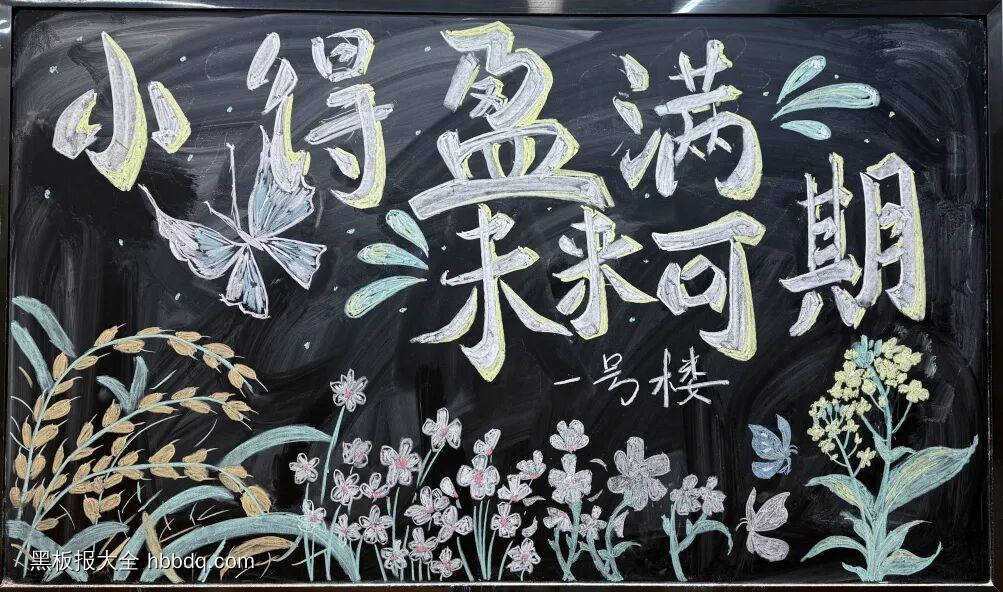 小得盈满
未来可期
一号楼
黑板报大全 hbbdq.com